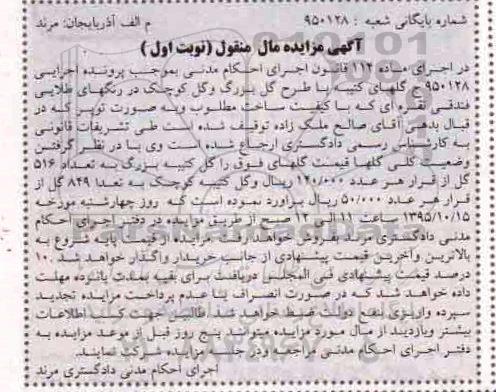 شماره بایگانی شعبه : ۹۵۰۱۲۸ م الف آذربایجان: مرند
آگهی مزایده مال منقول (نوبت اول )
در اجرای ماده ۱۱۲ قانون اجرای احکام مدنی بموجب پرونده اجرایی
۹۵۰۱۲۸ ج گلهای کتیبه با طرح گل بزرگ وگل کوچک در رنگهای طلایی
فندقی قهوه ای که با کیفیت ساخت مطلوب وبه صورت توپر که در
قبال بدهی آقای صالح ملک زاده توقیف شده است طی تشریفات قانونی
به کارشناس رسمی دادگستری ارجاع شده است وی با در نظر گرفتن
وضعیت کلی گلها قیمت گلهای فوق را گل کتیبه بزرگ به تعداد ۵۱۶
گل از قرار هر عدد ۱۴۰/۰۰۰ ریال وگل کتیبه کوچک به تعدا ۸۴۹ گل از
قرار هر عدد ۵۰/۰۰۰ ریال برآورد نموده است که روز چهارشنبه مورخه
۱۳۹۵/۱۰/۱۵ ساعت ۱۱ الی ۱۲ صبح از طریق مزایده در دفتر اجرای احکام
مدنی دادگستری مرند بفروش خواهد رفت مزایده از قیمت پایه شروع به
بالاترین وآخرین قیمت پیشنهادی از جانب خریدار واگذار خواهد شد ۱۰
درصد قیمت پیشنهادی فی المجلس دریافت برای بقیه بمدت پانزده مهلت
داده خواهد شد که در صورت انصراف یا عدم پرداخت مزایده تجدید
سپرده واریزی بنفع دولت ضبط خواهد شد طالبین جهت کسب اطلاعات
بیشتر وبازدید از مال مورد مزایده میتوانند پنج روز قبل از موعد مزایده به
دفتر اجرای احکام مدنی مراجعه ودر جلسه مزایده شرکت نمایند.
اجرای احکام مدنی دادگستری مرند